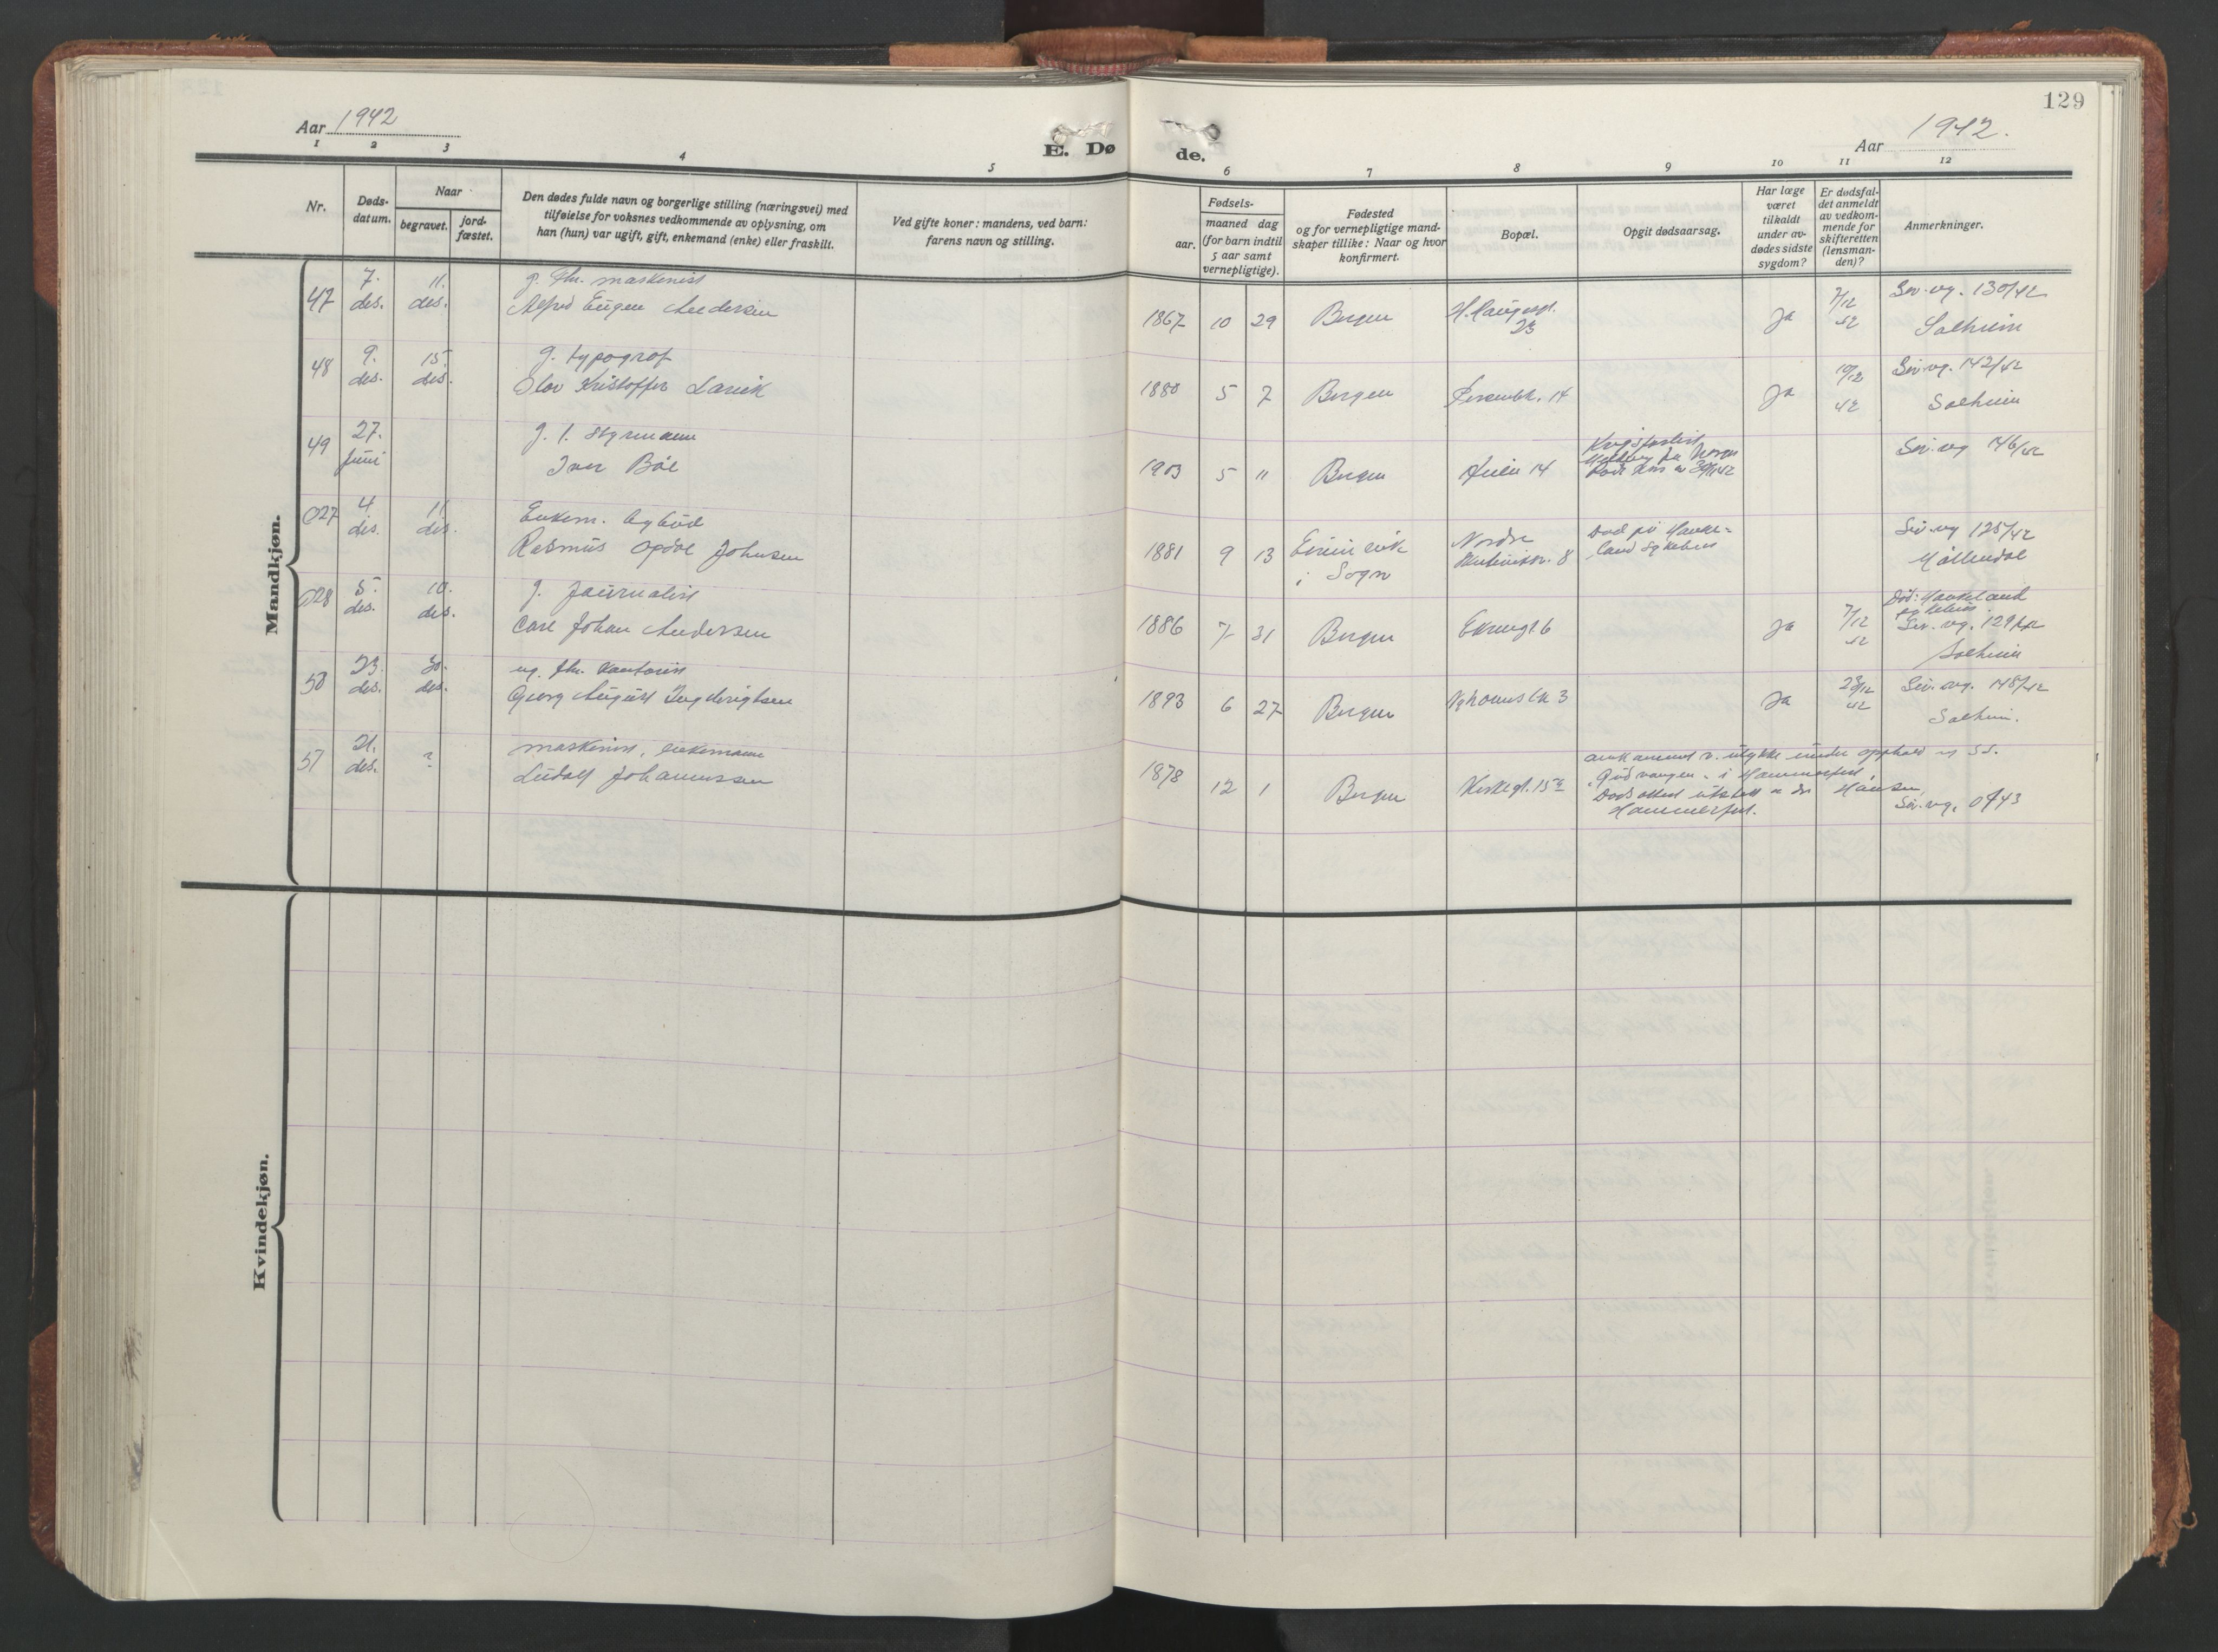 129
Aar 1942
Aar 1942.
E. Dø
de.
1 2 3 4 5
6 7 8 9 10 11 12
Nr.
Døds-
datum.
Naar
begravet.
jord-
fæstet.
Den dødes fulde navn og borgerlige stilling (næringsvei) med
tilføielse for voksnes vedkommende av oplysning, om
han (hun) var ugift, gift, enkemand (enke) eller fraskilt.
Ved gifte koner: mandens, ved barn:
farens navn og stilling.
Fødsels-
aar.
maaned dag
(for barn indtil
5 aar samt
vernepligtige).
Fødested
og for vernepligtige mand-
skaper tillike: Naar og hvor
konfirmert.
Bopæl.
Opgit dødsaarsag.
Har læge
været
tilkaldt
under av-
dødes sidste
sygdom?
Er dødsfal-
det anmeldt
av vedkom-
mende for
skifteretten
(lensman-
den)?
Anmerkninger.
Mandkjøn.
47 7. des. 11. des.
g. fhv. maskinist
Alfred Eugen Andersen
1867 10 29 Bergen H. Haugesgt. 23 Ja 7/12 42 130/42
Solheim
48 9. des. 15. des.
g. typograf
Olav Kristoffer
1880 5 7 Bergen 14 Ja 10/12 42 142/42
Solheim
49 27. juni
g. 1. styrmann
Iver Böe
1903 5 11 Bergen 14 Krigsforlist
146/42
027 4. des. 11. des.
Enkem. bybud
Rasmus Opdal Johnsen
1881 9 13 Eivindvik
i Sogn
Nordre
8
Död på Hauke-
land sykehus
125/42
Möllendal
028 5. des. 10. des.
g. journalist
Carl Johan Andersen
1886 7 31 Bergen Ekrengt. 6 Ja 7/12 42
Död: Haukeland
sykehus.
129/42
Solheim
50 23. des. 30. des.
ug. fhv. kontorist
Georg August
1893 6 27 Bergen 3 Ja 23/12 42 148/42
Solheim.
51 21. des. ?
maskinist, enkemann
Ludolf Johannessen
1878 12 1 Bergen Kirkegt. 15
omkommet v. ulykke under opphold
"Gudvangen" i Hammerfest.
Dödsattest utstedt a dr Hansen,
Hammerfest.
Kvindekjøn.